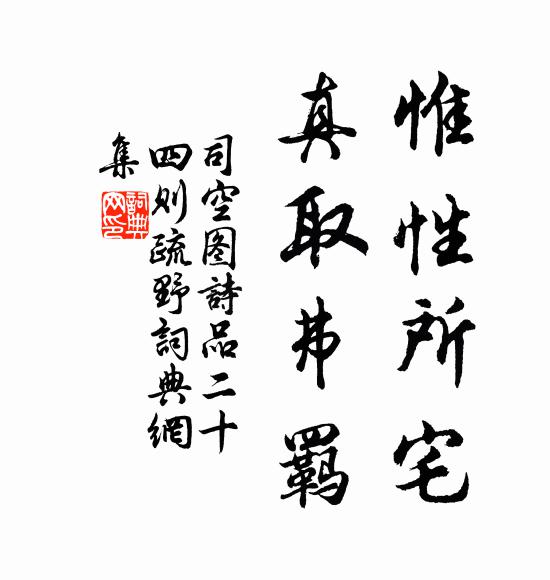 惟性所宅
真取弗羁
司空图詩品二十
四则疏野詞典網
集
詞典
网印